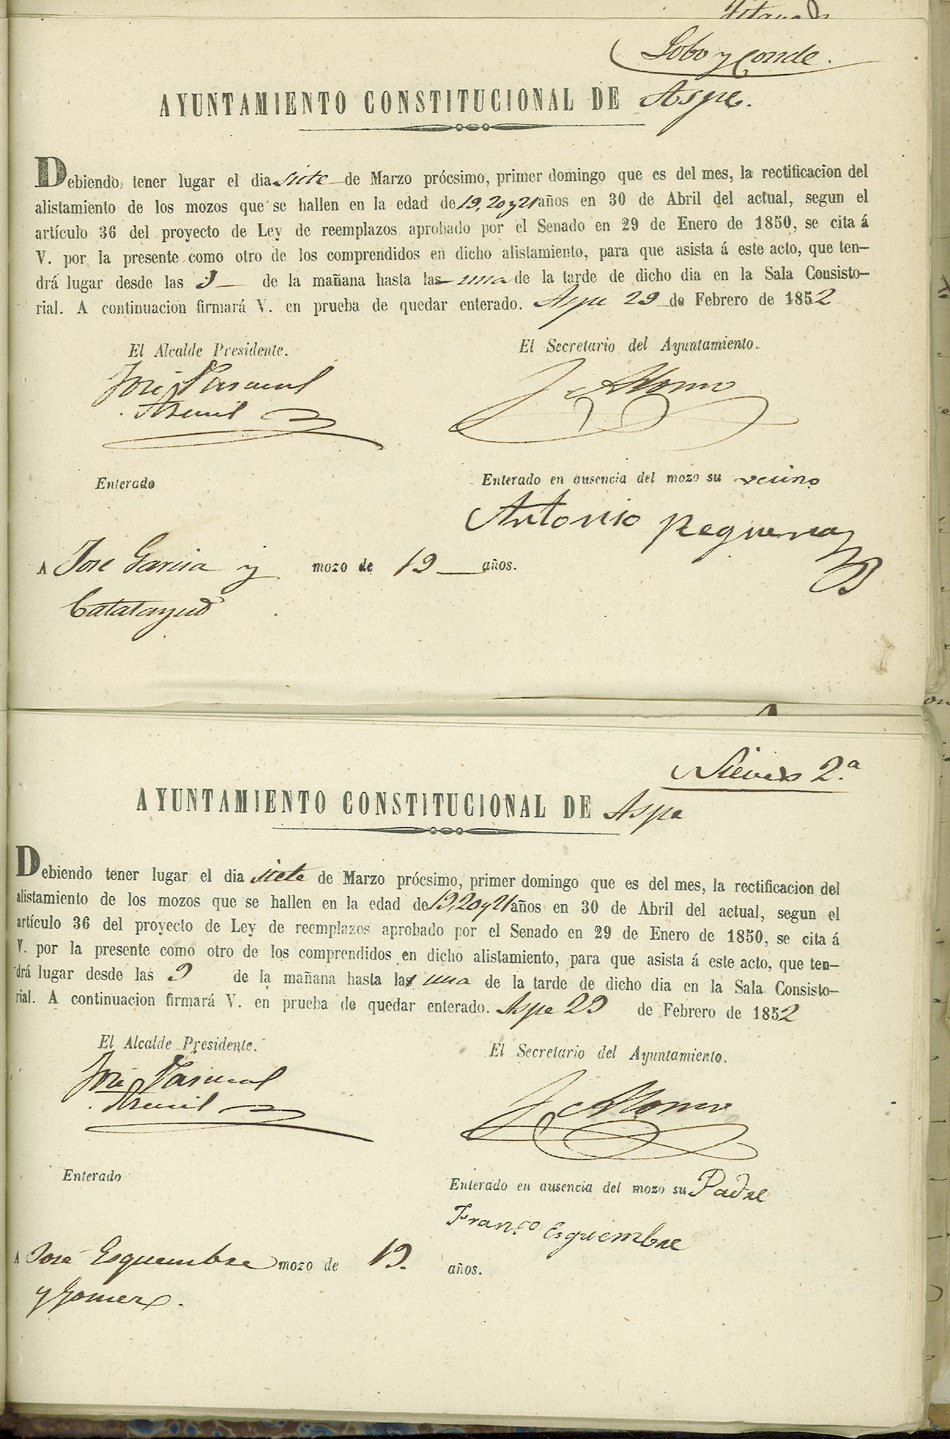 Lobo y Conde.
AYUNTAMIENTO CONSTITUCIONAL DE Aspe.
Debiendo tener lugar el dia siete de Marzo prócsimo, primer domingo que es del mes, la rectificacion del
alistamiento de los mozos que se hallen en la edad de 19, 20 y 21 años en 30 de Abril del actual, segun el
artículo 36 del proyecto de Ley de reemplazos aprobado por el Senado en 29 de Enero de 1850, se cita á
V. por la presente como otro de los comprendidos en dicho alistamiento, para que asista á este acto, que ten-
drá lugar desde las 9 de la mañana hasta las una de la tarde de dicho dia en la Sala Consisto-
rial. A continuacion firmará V. en prueba de quedar enterado. Aspe 29 de Febrero de 1852
El Alcalde Presidente. El Secretario del Ayuntamiento.
José Pascual J. Alonso
Enterado Enterado en ausencia del mozo su vecino
Antonio
A Jose Garcia y mozo de 19 años.
Calatayud
Nieves 2.a
AYUNTAMIENTO CONSTITUCIONAL DE Aspe
Debiendo tener lugar el dia siete de Marzo prócsimo, primer domingo que es del mes, la rectificacion del
alistamiento de los mozos que se hallen en la edad de 19, 20 y 21 años en 30 de Abril del actual, segun el
artículo 36 del proyecto de Ley de reemplazos aprobado por el Senado en 29 de Enero de 1850, se cita á
V. por la presente como otro de los comprendidos en dicho alistamiento, para que asista á este acto, que ten-
drá lugar desde las 9 de la mañana hasta las una de la tarde de dicho dia en la Sala Consisto-
rial. A continuacion firmará V. en prueba de quedar enterado. Aspe 29 de Febrero de 1852
El Alcalde Presidente. El Secretario del Ayuntamiento.
José Pascual J. Alonso
Enterado Enterado en ausencia del mozo su Padre
Fran.co Esquembre
A José Esquembre mozo de 19. años.
y Gomez.